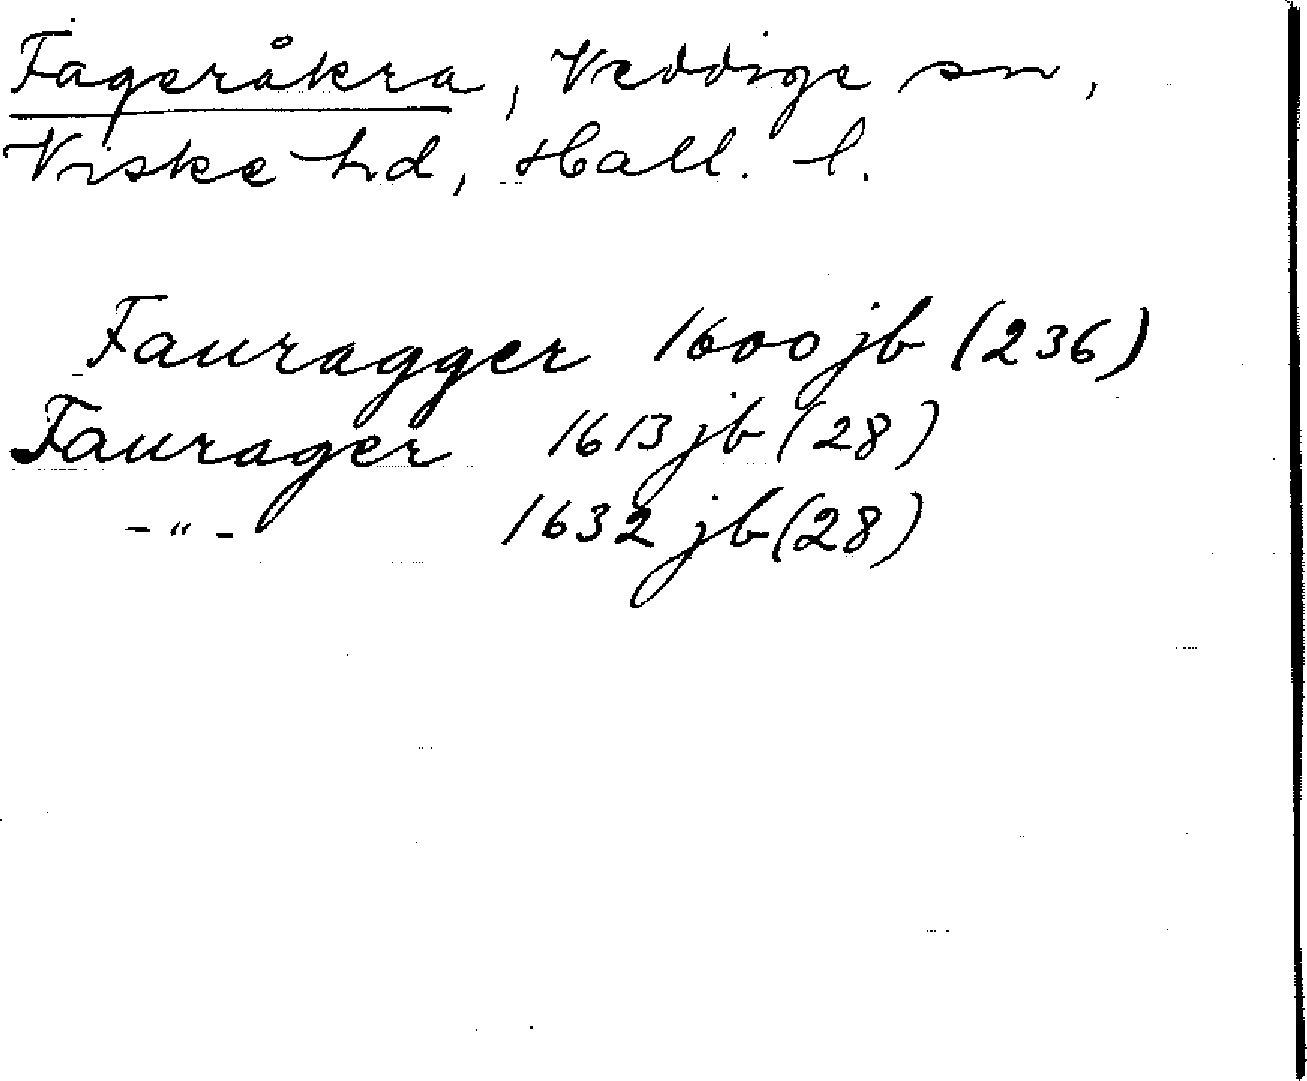 Fageråkra, Veddige sn,
Viske hd, Hall. l.
Fauragger 1600 jb (236)
Faurager 1613 jb (28)
-"- 1632 jb (28)